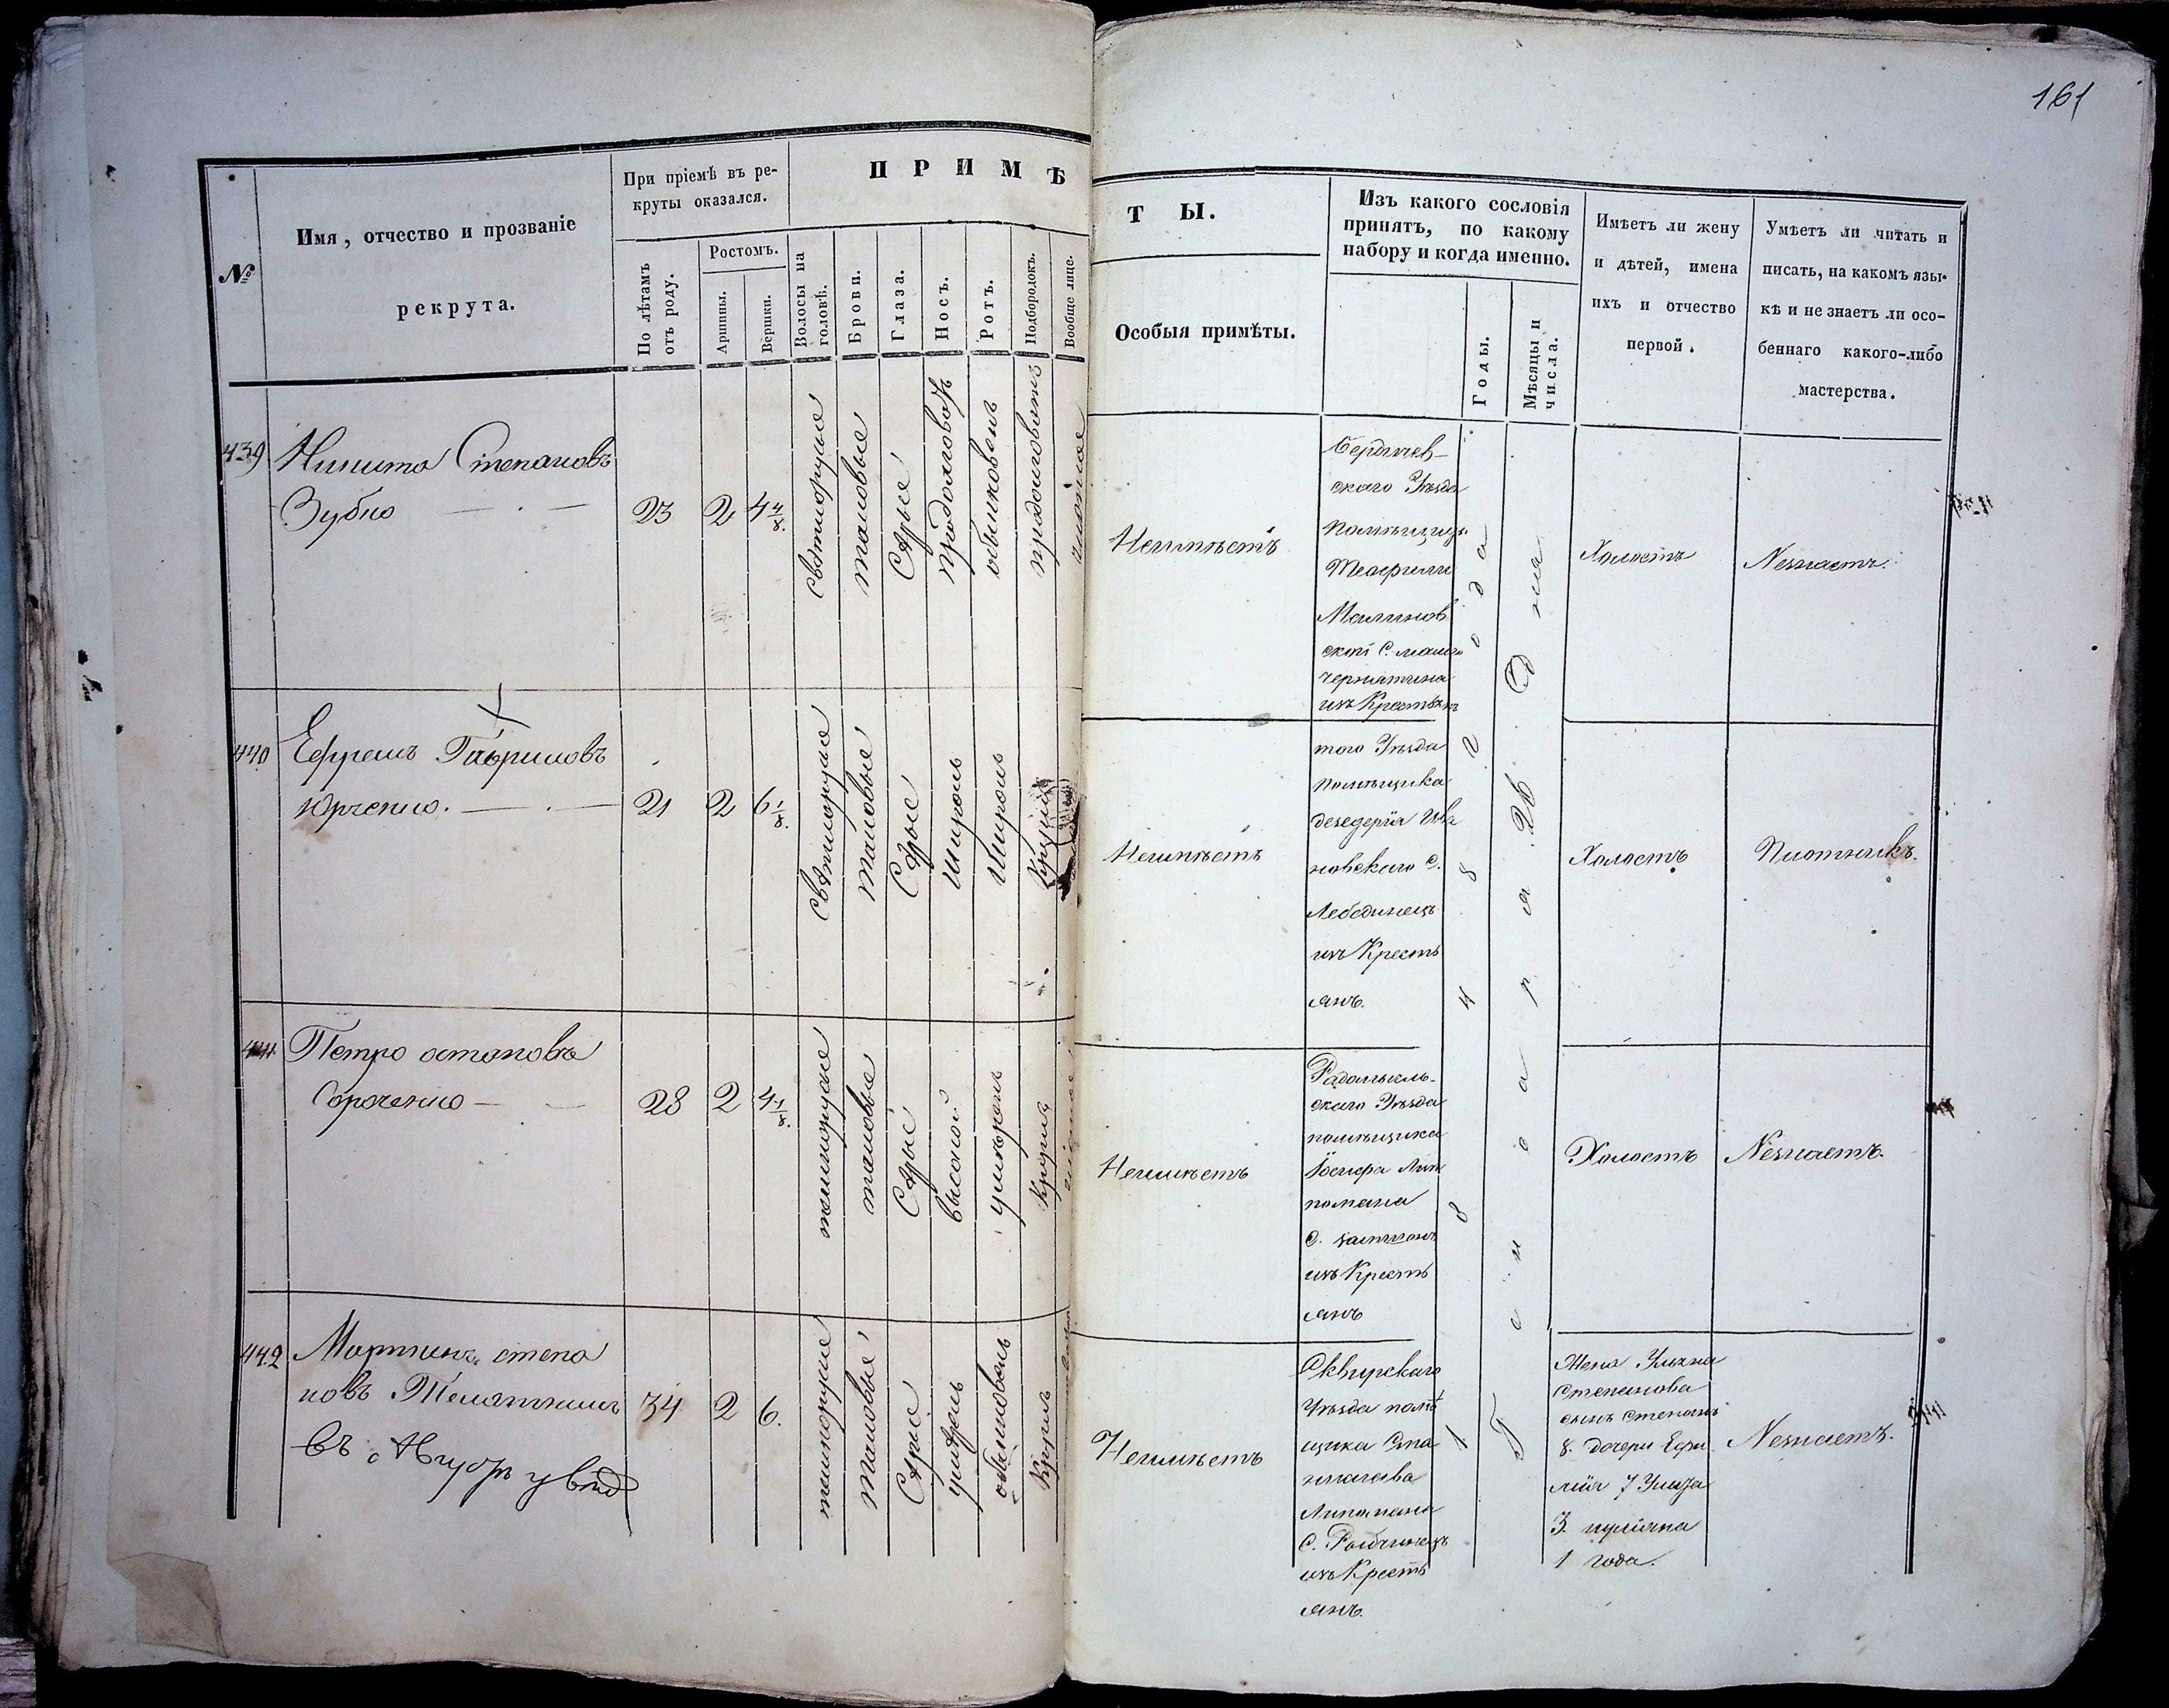 161
№
Имя, отчество и прозваніе
рекрута.
При пріемѣ въ ре-
круты оказался.
По лѣтамъ
отъ роду.
Ростомъ.
Аршины.
Вершки.
ПРИМѢ
Волосы на
головѣ.
Брови.
Глаза.
Носъ.
Ротъ.
Подбородокъ.
Вообще лице.
ТЫ.
Особыя примѣты.
Изъ какого сословія
принятъ, по какому
набору и когда именно.
Годы.
Мѣсяцы и
числа.
Имѣетъ ли жену
и дѣтей, имена
ихъ и отчество
первой.
Умѣетъ ли читать и
писать, на какомъ язы-
кѣ и не знаетъ ли осо-
беннаго какого-либо
мастерства.
439
Никита Степановъ
Зубко
23
2
4 4/8.
свѣтлорусые
таковые
Сѣрые
продолговатъ
обыкновенъ
продолговатъ
чистое
Неимѣетъ
Бердичев-
скаго Уѣзда
помѣщицы
Теофили
Малинов
ской С. мало
чернятина
изъ Крестьянъ
Холостъ
Незнаетъ.
440
Ефремъ Гавриловъ
Юрченко.
21
2
6 1/8.
свѣтлорусые
таковые
Сѣрые
Широкъ
Широкъ
Круглъ
Неимѣетъ
того Уѣзда
помѣщика
дезедерія Ива
новскаго С.
Лебединецъ
изъ Кресть
янъ.
Холостъ
Плотникъ.
441
Петро остаповъ
Сороченко
28
2
4 1/8.
темнорусые
таковые
Сѣрые
высокой
умѣренъ
Круглъ
чистое
Неимѣетъ
Радомысль-
скаго Уѣзда
помѣщика
Іосифа Лип
помана
С.
изъ Кресть
янъ
Холостъ
Незнаетъ.
442
Мартинъ степа
новъ
въ
34
2
6.
темнорусые
таковые
Сѣрые
умѣренъ
обыкновенъ
Круглъ
Неимѣетъ
Сквирскаго
Уѣзда помѣ
щика Ста
нислава
Липомана
С.
изъ Кресть
янъ.
Жена
Степанова
сынъ Степанъ
8. дочери Ефи
мія 7
3.
1 года.
Незнаетъ.
1848 года
Генваря 26. Дня